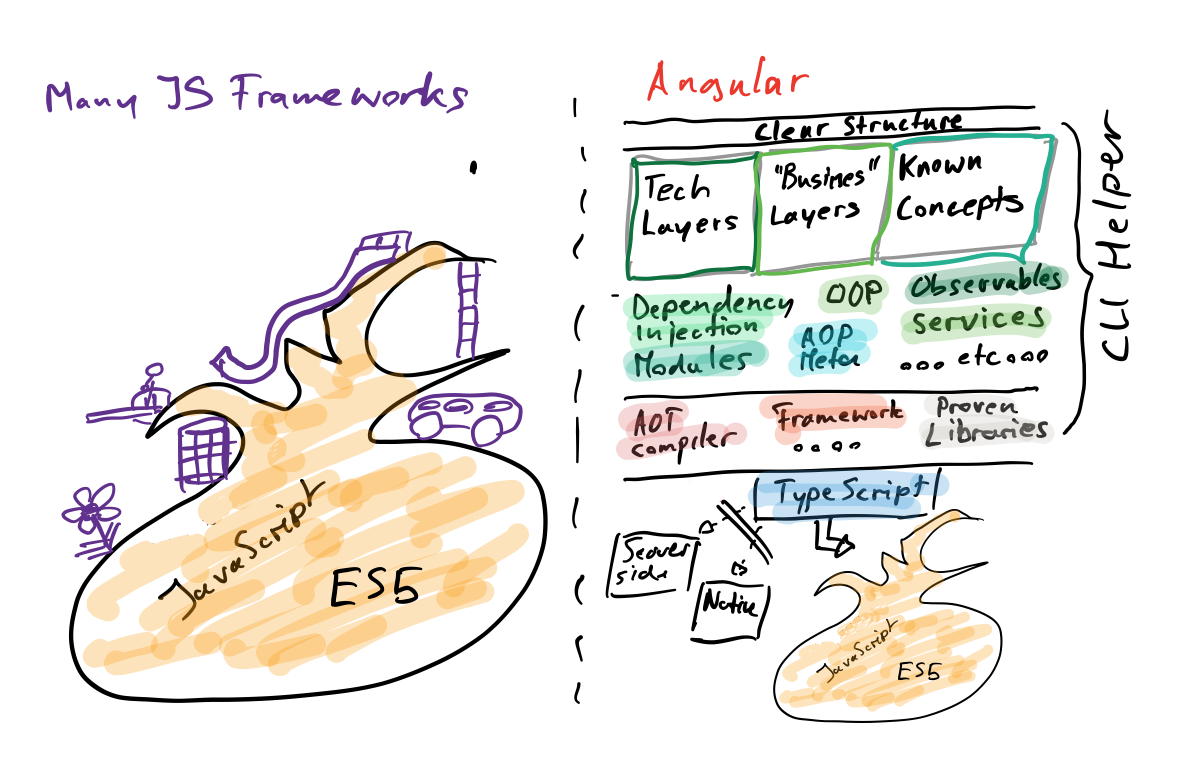 Many JS Frameworks
JavaScript
ES5
Angular
Clear Structure
Tech
Layers
"Busines"
Layers
Known
Concepts
Dependency
Injection
Modules
OOP
AOP
Meta
Observables
Services
... etc...
CLI Helper
AOT
compiler
Framework
....
Proven
Libraries
TypeScript
Server
side
Native
JavaScript
ES5